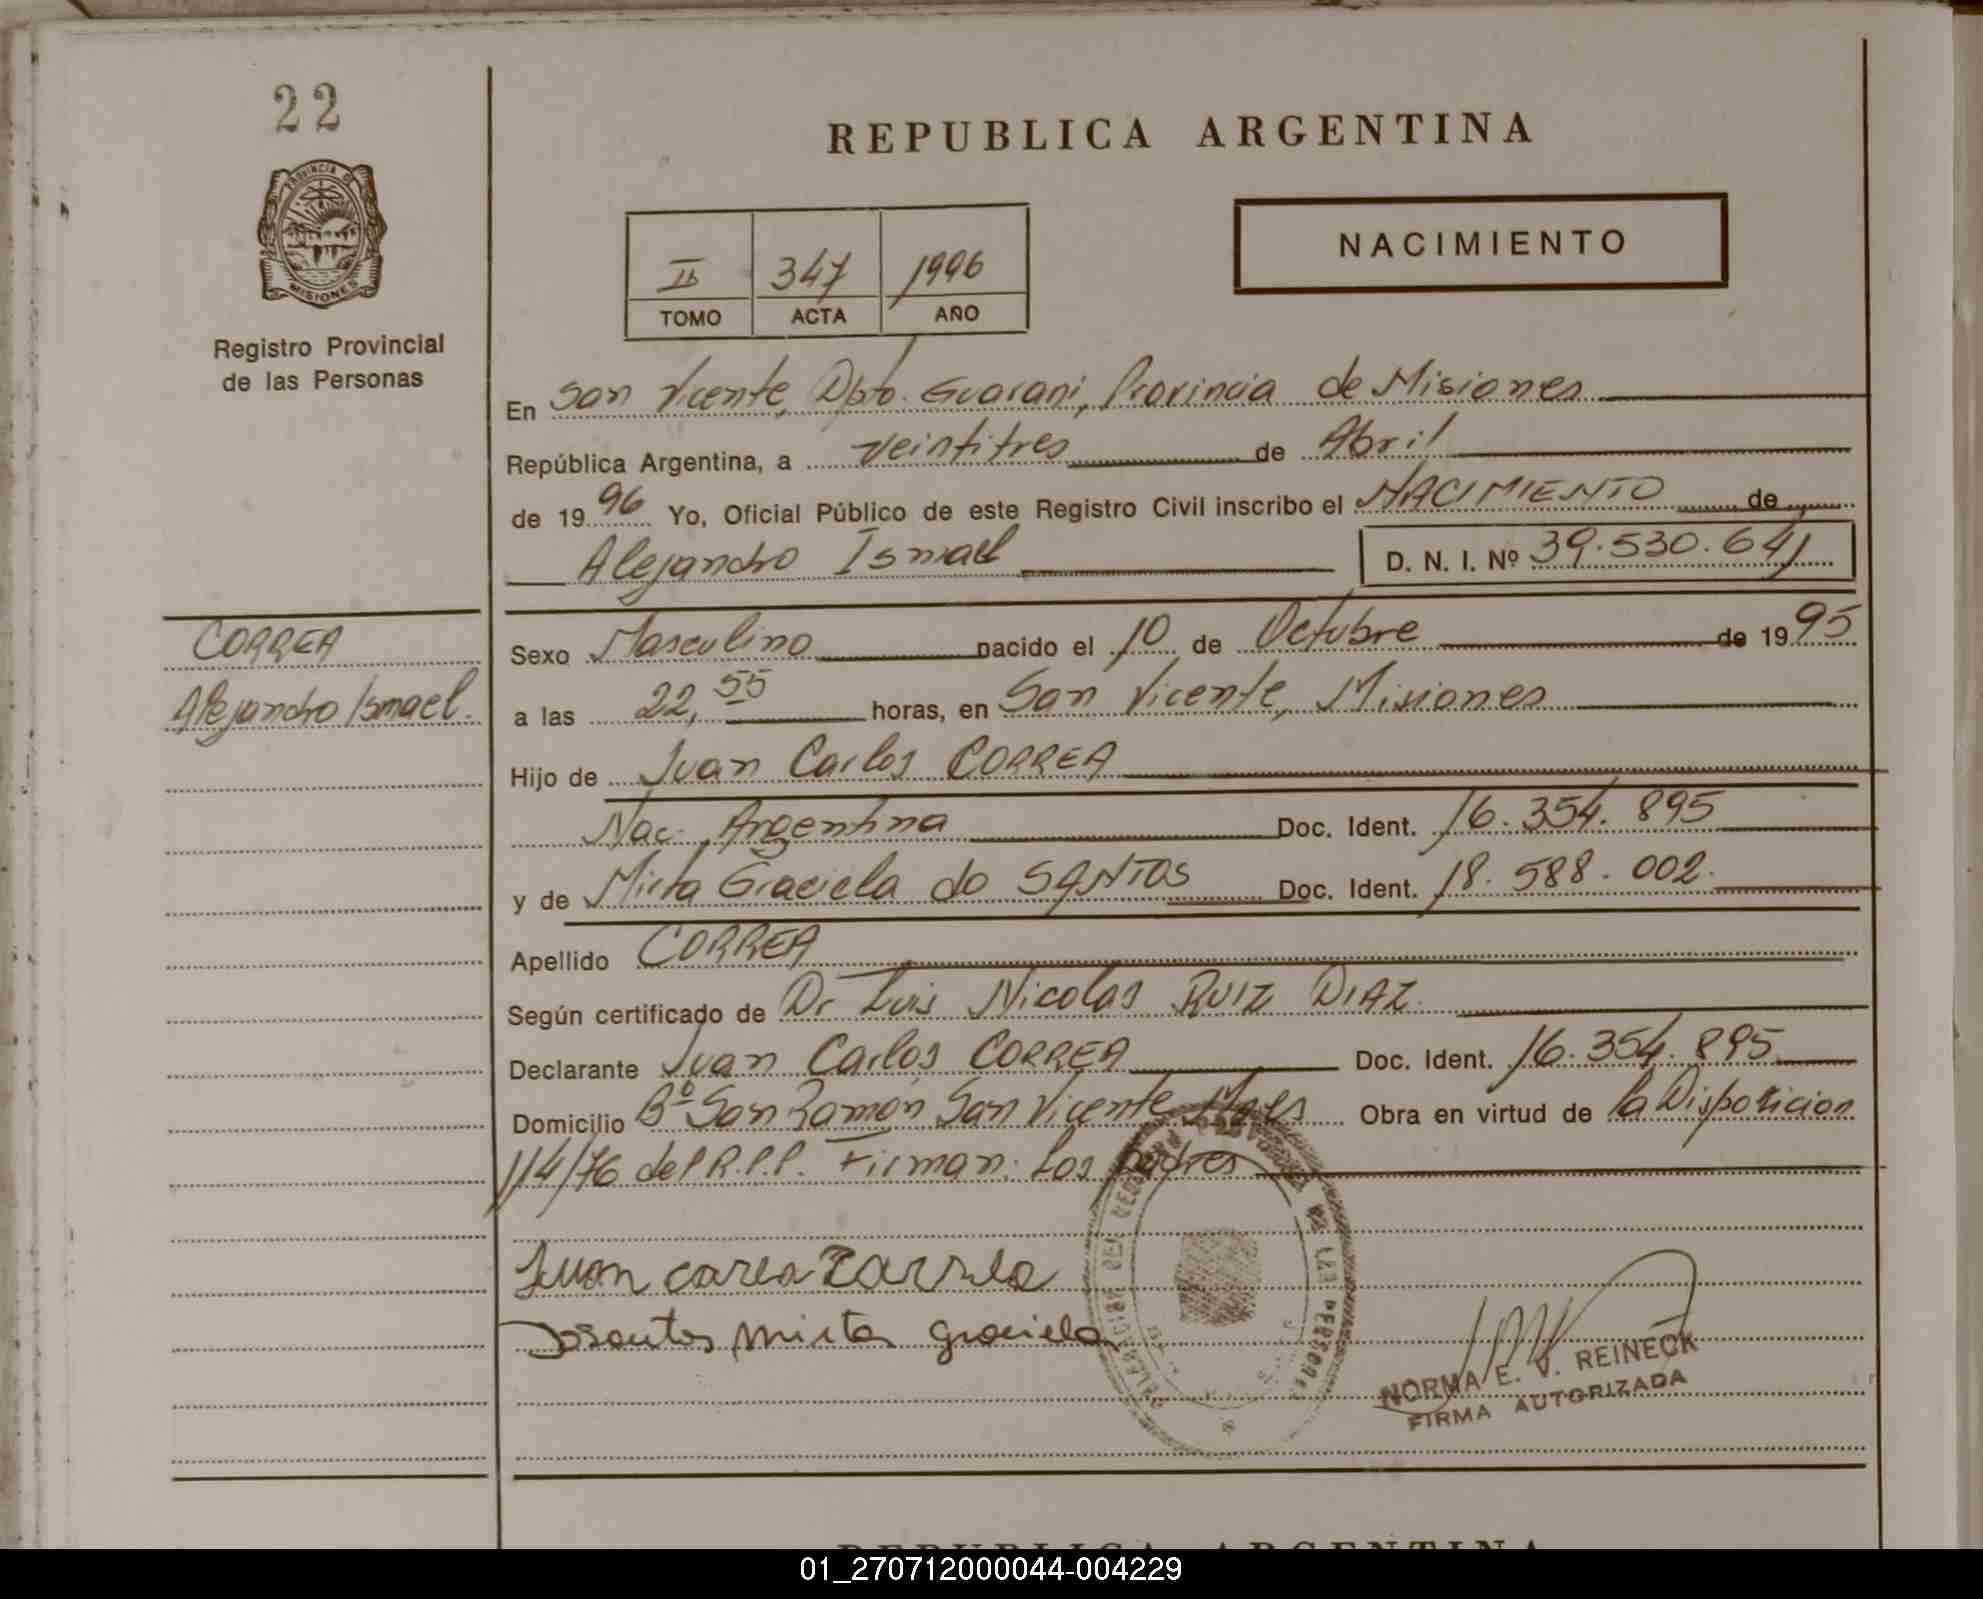 22
PROVINCIA DE
MISIONES
Registro Provincial
de las Personas
CORREA
Alejandro Ismael.
REPUBLICA ARGENTINA
NACIMIENTO
II 347 1996
TOMO ACTA AÑO
En San Vicente, Dpto. Guarani, Provincia de Misiones
República Argentina, a veintitres de Abril
de 1996 Yo, Oficial Público de este Registro Civil inscribo el NACIMIENTO de
Alejandro Ismael D. N. I. Nº 39.530.641
Sexo Masculino nacido el 10 de Octubre de 1995
a las 22,55 horas, en San Vicente, Misiones
Hijo de Juan Carlos CORREA
Nac. Argentina Doc. Ident. 16.354.895
y de Mirta Graciela do SANTOS Doc. Ident. 18.588.002.
Apellido CORREA
Según certificado de Dr Luis Nicolas RUIZ DIAZ.
Declarante Juan Carlos CORREA Doc. Ident. 16.354.895
Domicilio Bº San Ramón, San Vicente Mnes Obra en virtud de la Disposicion
114/76 del R.P.P. Firman: Los Padres
Juan
dosantos mirta graciela
NORMA E. V. REINECK
FIRMA AUTORIZADA
REPUBLICA ARGENTINA
01_270712000044-004229